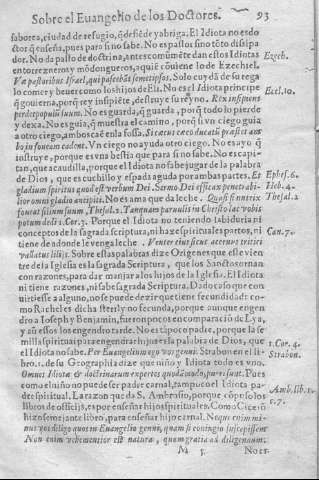 Sobre el Euangelio de los Doctores. 93
saborea, ciudad de refugio, q̃ defiẽde y abriga. El Idiota no es do
ctor q̃ enseña, pues para si no sabe. No es pastos sino tõto dissipa
dor. No da pasto de doctrina, antes comũmẽte dan estos Idiotas
entorrezneros y mõdongueros, a quiẽ cõuiene lo de Ezechiel. Ezech.
Væ pastoribus Israel, qui pascebãt semetipsos. Solo cuydã de su rega
lo comer y beuer como los hijos de Eli. No es el Idiota principe Eccl. 10.
q̃ gouierna, porq̃ rey insipiẽte, destruye su reyno. Rex insipiens
perdet populũ suum. No es guarda, q̃ guarda, porq̃ todo lo pierde
y dexa. No es guia, q̃ muestra el camino, porq̃ si vn ciego guia
a otro ciego, ambos caẽ en la fossa. Si cæcus cæco ducatũ præstet am
bo in foueam cadent. Vn ciego no ayuda otro ciego. No es ayo q̃
instruye, porque es vna bestia que para si no sabe. No es capi-
tan, que acaudilla, porque el Idiota no sabe jugar de la palabra
de Dios, que es cuchillo y espada aguda por ambas partes. Et Ephes. 6.
gladium spiritus quod est verbum Dei. Sermo Dei efficax penetrabi- Heb. 4.
lior omni gladio ancipiti. No es ama que da leche. Quasi si nutrix Thesal. 2
foueat filium suum, Thesal. 2. Tanquam paruulis in Christo lac vobis
potum dedi 1. Cor. 3. Porque el Idiota no teniendo sabiduria ni
conceptos de la sagrada scriptura, ni haze spirituales partos, ni
tiene de donde le venga leche. Venter tuus sicut aceruus tritici Can. 7.
vallatus lilijs. Sobre estas palabras dize Origenes que esse vien
tre de la Iglesia es la sagrada Scriptura, que los Sanctos orna-
ron razones, para dar manjar a los hijos de la Iglesia. El Idiota
ni tiene razones, ni sabe sagrada Scriptura. Dado caso que con
uirtiesse a alguno, no se puede dezir que tiene fecundidad: co-
mo Rachel es dicha steril y no fecunda, porque aunque engen
dro a Ioseph y Benjamin, fueron pocos en comparaciõ de Lya,
y aũ essos los engendro tarde. No es tipoco padre, porque la se
milla spiritual para engendrar hijos es la palabra de Dios, que 1. Cor. 4.
el Idiota no sabe. Per Euangelium ego vos genui. Strabon en el li- Strabon.
bro. 1. de su Geographia dize que niño y Idiota todo es vno.
Omnis idiota & doctrinarum expertes quodãmodo, puer sunt. Pues
como el niño no puede ser padre carnal, tampoco el Idiota pa-
dre spiritual. La razon que da S. Ambrosio, porque cõpuso los Amb. lib. 1.
libros de officijs, es por enseñar hijos spirituales. Como Cicerõ c. 7.
hizo semejante libro, para enseñar hijo carnal. Neque enim mi-
nus vos diligo quos in Euangelio genui, quam si coniugio suscepissem
Non enim vehementior est natura, quam gratia ad diligendum.
M 5 No es